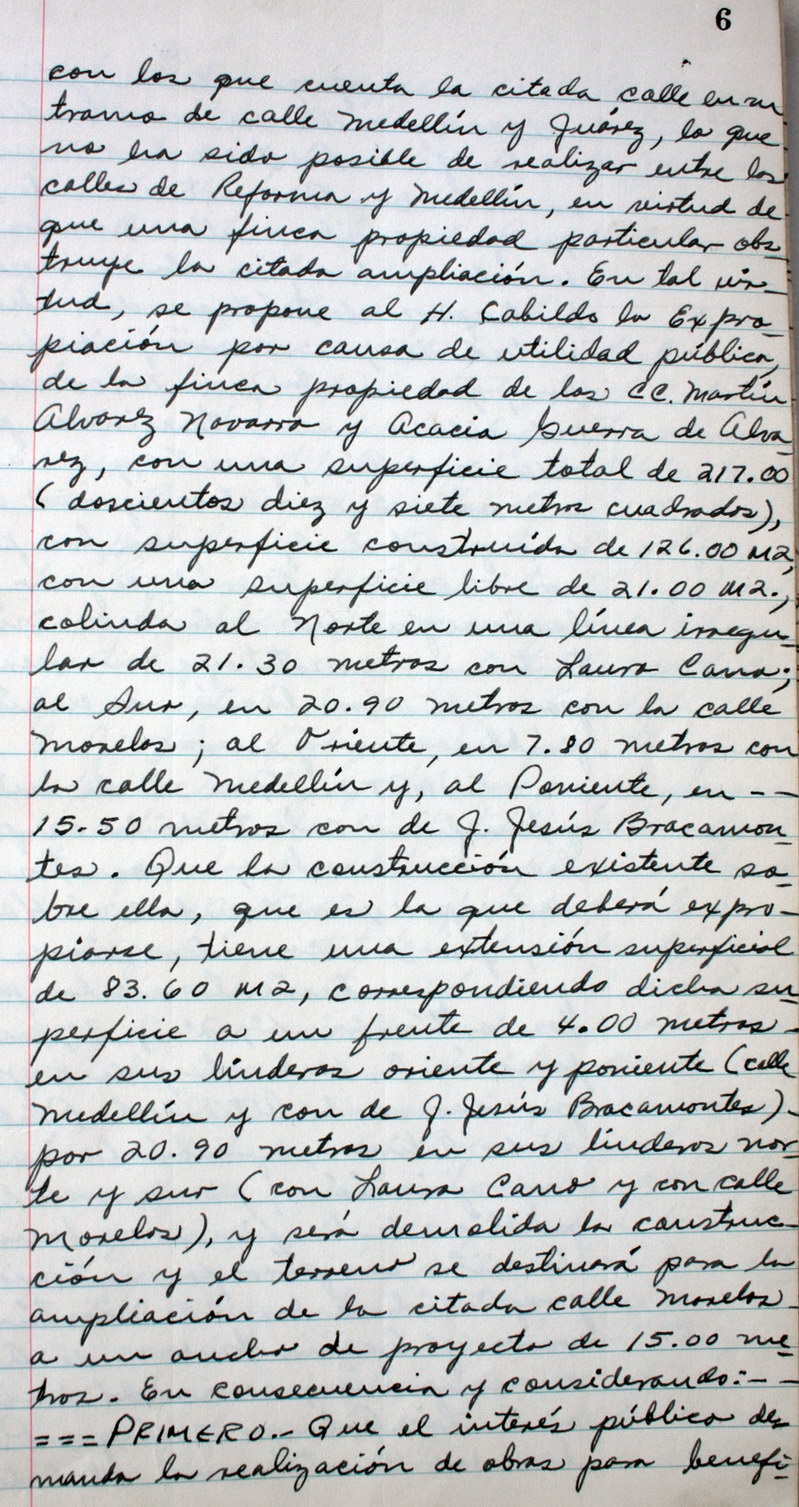 6
con los que cuenta la citada calle en su
tramo de calle Medellín y Juárez, lo que
no ha sido posible de realizar entre las
calles de Reforma y Medellín, en virtud de
que una finca propiedad particular obs-
truye la citada ampliación. En tal vir-
tud, se propone al H. Cabildo la Expro-
piación por causa de utilidad pública,
de la finca propiedad de los CC. Martín
Alvarez Navarro y Acacia Guerra de Alva-
rez, con una superficie total de 217.00
(doscientos diez y siete metros cuadrados),
con superficie construída de 126.00 M2,
con una superficie libre de 21.00 M2.,
colinda al Norte en una línea irregu-
lar de 21.30 metros con Laura Cano;
al Sur, en 20.90 metros con la calle
Morelos; al Oriente, en 7.80 metros con
la calle Medellín y, al Poniente, en --
15.50 metros con de J. Jesús Bracamon-
tes. Que la construcción existente so-
bre ella, que es la que deberá expro-
piarse, tiene una extensión superficial
de 83.60 M2, correspondiendo dicha su-
perficie a un frente de 4.00 metros-
en sus linderos oriente y poniente (calle
Medellín y con de J. Jesús Bracamontes)-
por 20.90 metros en sus linderos nor-
te y sur (con Laura Cano y con calle
Morelos), y será demolida la construc-
ción y el terreno se destinará para la
ampliación de la citada calle Morelos-
a un ancho de proyecto de 15.00 me-
tros. En consecuencia y considerando:--
=== PRIMERO.- Que el interés público de-
manda la realización de obras para benefi-